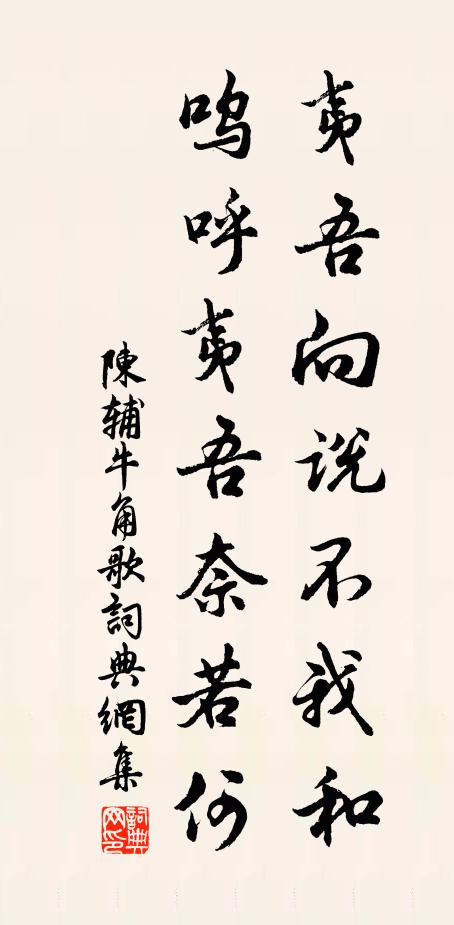 夷吾向说不我和
呜呼夷吾奈若何
陳辅牛角歌詞典網集
詞典网印